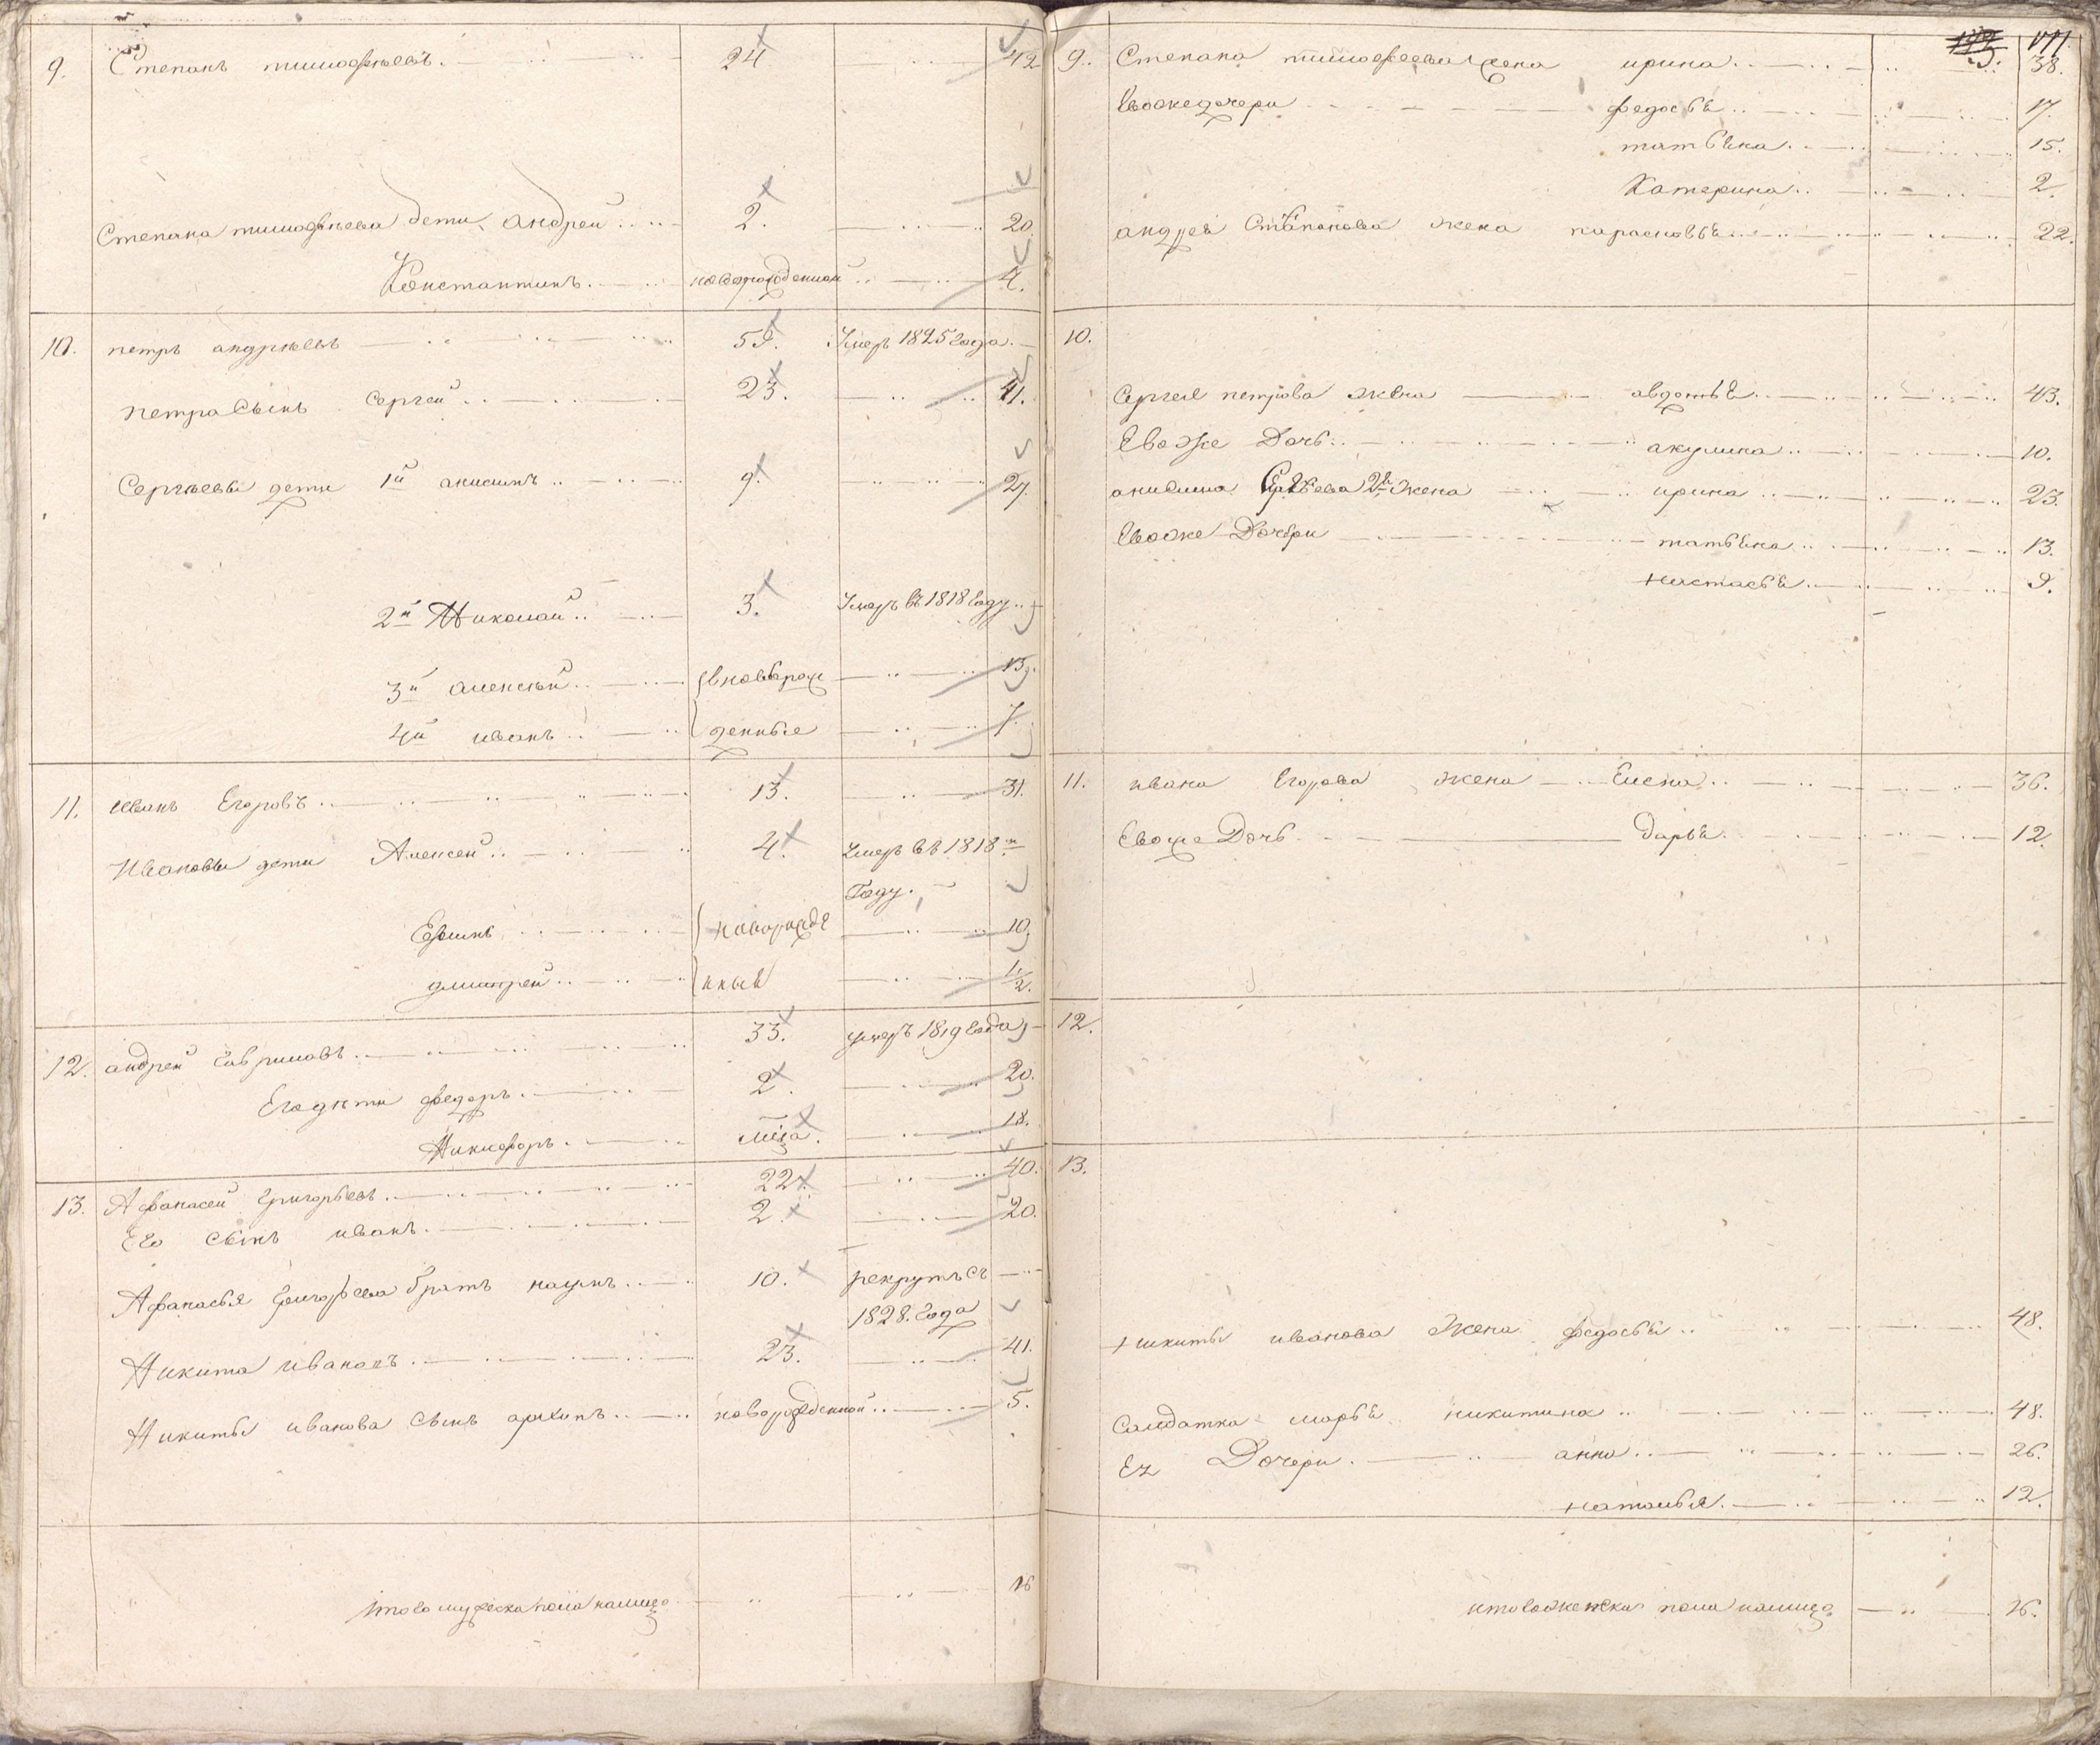 9. Степанъ тимофѣевъ. 24 42
Степана тимофѣева дети андрей 2. 20.
Константинъ. новорожденной 4.
10. петръ андрѣевъ 59. Умеръ 1825 года.
петра Сынъ Сергей 23. 41.
Сергѣевы дети 1й анисимъ 9. 27.
2й Николай 3. Умеръ въ 1818 году
3й алексѣй вновьрож 13.
4й иванъ денные 7.
11. иванъ Егоровъ 13. 31.
Ивановы дети Алексей 4. Умеръ въ 1818м
Году.
Ефимъ новорожде 10.
дмитрей нные 1/2.
12. андрей Гавриловъ 33. умеръ 1819 года
Егодѣти федоръ 2. 20.
Никифоръ. 18.
13. Афанасей Григорьевъ. 22. 40.
Его Сынъ иванъ. 2. 20.
Афанасья Григорьева братъ наумъ 10. рекрутъ съ
1828. года
Никита ивановъ. 23. 41.
Никиты иванова Сынъ архипъ новорожденной 5.
итого мужеска пола налицо 16
177.
9. Степана тимофеева жена ирина 38.
Евоже дочери федосья 17.
татьяна 15.
Катерина 2.
андрея Степанова жена парасковья 22.
10.
Сергея петрова жена авдотья 43.
Евоже Дочь акулина 10.
анисима Сергеева 2я жена ирина 23.
Евоже Дочери татьяна 13.
настасья 9.
11. ивана Егорова жена Елена 36.
Евоже Дочь дарья 12.
12.
13.
никиты иванова жена федосья 48.
Салдатка марья никитина 48.
Ея Дочери анна 26.
наталья 12.
итого женска пола налицо 16.